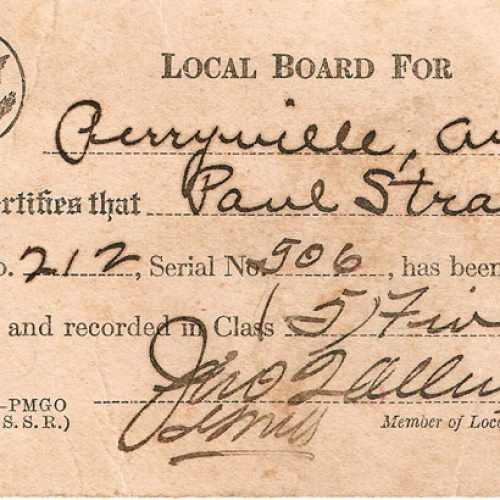 LOCAL BOARD FOR
Perryville,
ertifies that Paul Stra
o. 212, Serial No. 506, has been
and recorded in Class (5) Fiv
-PMGO
S. S. R.)
Member of Loc